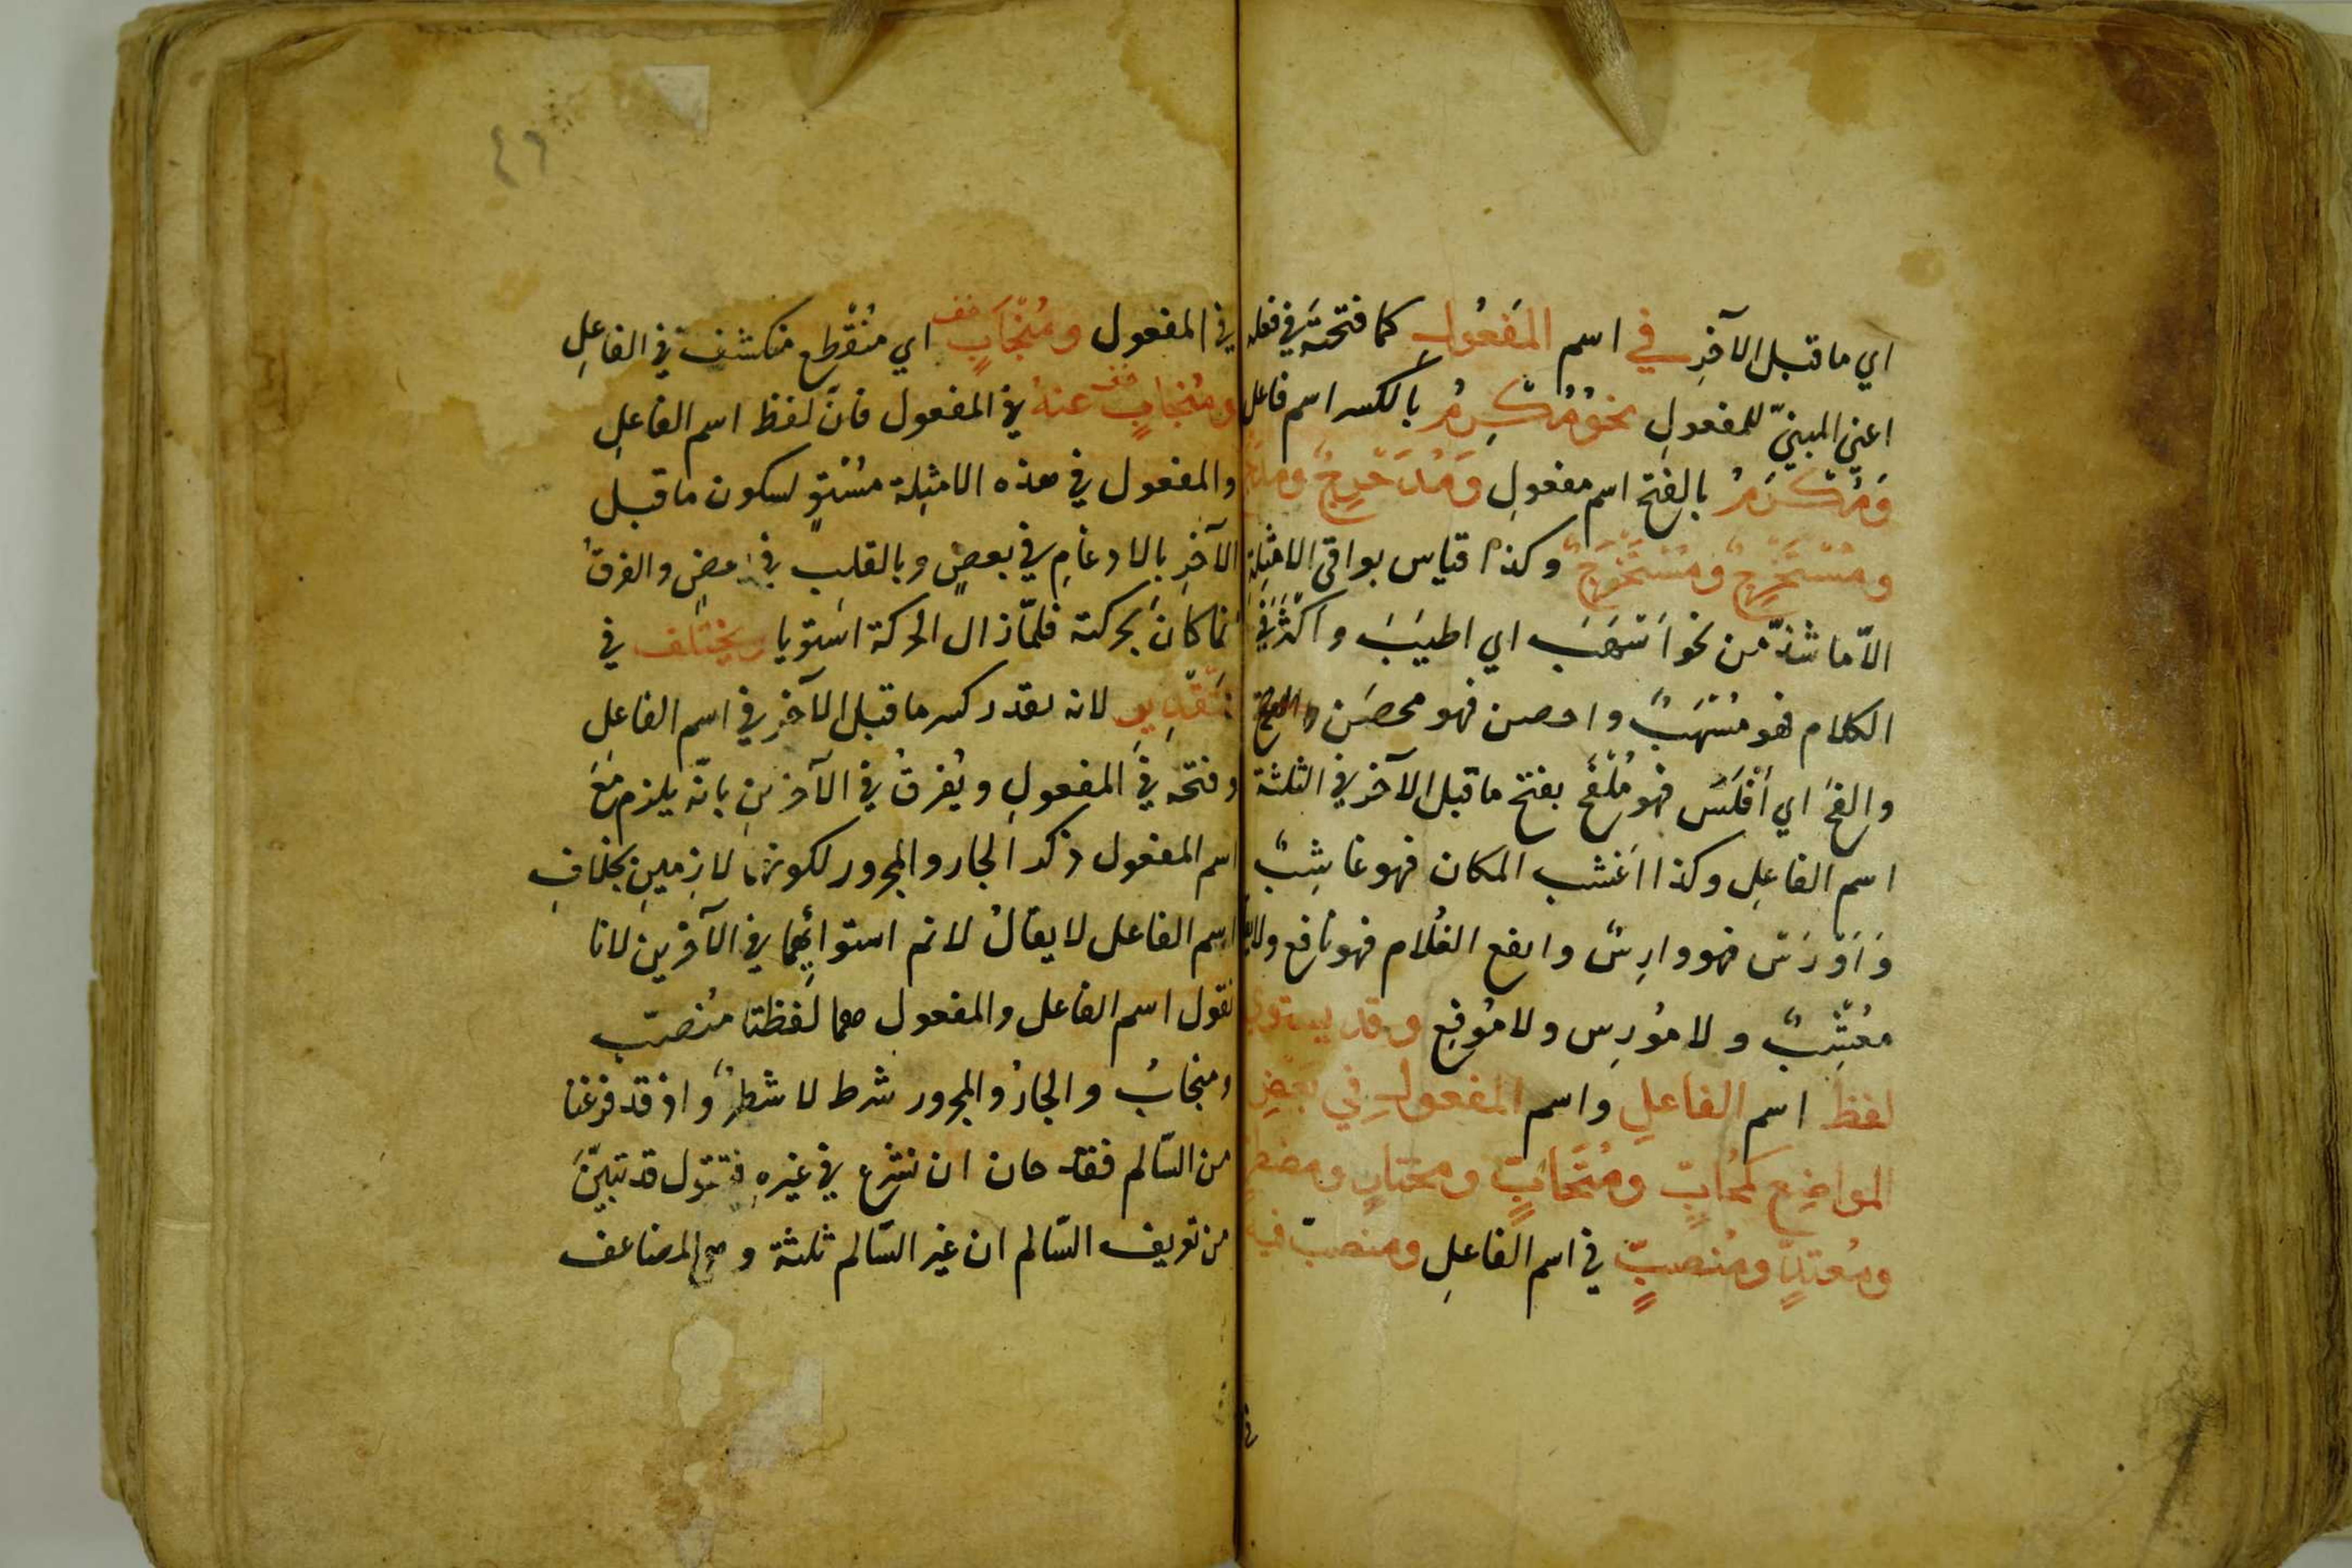 اي ما قبل الآخرِ في اسم المَفعُولِ كما فتحتَه في فعله
اعني المبنيّ للمفعولِ نحوُ مُكْرِمٌ بالكسر اسم فاعل
وَمُكْرَمٌ بالفتح اسم مفعولِ وَمُدَحْرِجٌ ومدحرج
ومُسْتَخْرِجٌ ومُسْتَخْرَجٌ وكذا قياس بواقي الامثلةِ
الاّ ما شذّ من نحو اَسْهَبَ اي اطنبَ واكثرَ في
الكلام فهو مُسْهَبٌ واحصن فهو محصَن والفج
والفجَ اي اَفْلَسَ فهو مُلْفَج بفتح ما قبل الآخر في الثلثة
اسم الفاعِلِ وكذا اعْشب المكان فهو عاشِبٌ
وَاَوْرَسَ فهو وارِسٌ وايفع الغُلام فهو يافع ولا يقال
مُعْشِبٌ ولا مُورِس ولا مُوفِع وقد يستوي
لفظ اسم الفاعلِ واسم المفعولِ في بَعْضِ
المواضِعِ كَمُحَابٍّ ومُتَحَابٍّ ومختارٍ ومضطرٍّ
ومُعتدٍّ ومُنصَبٍّ في اسم الفاعلِ ومنصبّ فيه
في المفعول ومُنْجَابٍ اي مُنْقطِع منكشف في الفاعلِ
ومُنْجابٍ عنهُ في المفعول فانّ لفظ اسم الفاعلِ
والمفعول في هذه الامثِلة مسْتوٍ لسكون ما قبل
الآخرِ بالادغامِ في بعضٍ وبالقلبِ في بعضٍ والفرقُ
انما كانَ بحركته فلمّا زال الحركة استويا ويختلف في
التقدِيرِ لانه يقدر كسر ما قبل الآخرِ في اسم الفاعلِ
وفتحه في المفعولِ ويُفرقُ في الآخرَينِ بانّه يلزم مَعَ
اسم المفعول ذكر الجار والمجرور لكونهما لازِمينِ بخلافِ
اسم الفاعل لا يقالُ لا نم استوائِهما في الآخرين لانا
نقول اسم الفاعل والمفعول هما لفظتا مُنصبّ
ومنجابُ والجارُ والمجرور شرط لا شطرٌ واذ قد فرغنا
من السّالم فقد حان ان نشرع في غيرِه فنقول قد تبيّنَ
من تعريف السّالم ان غير السّالم ثلثة وهي المضاعف